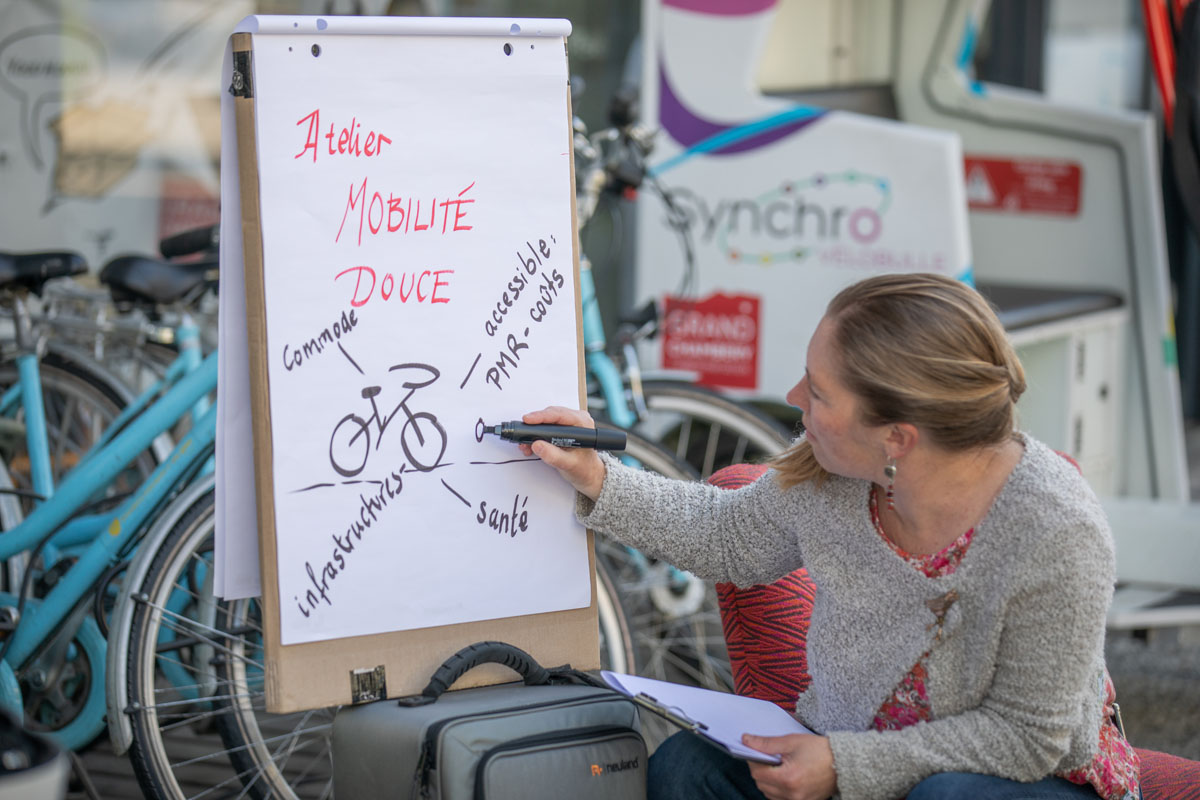 Atelier
MOBILITÉ
DOUCE
Commode
accessible:
PMR - coûts
infrastructures
santé
Synchro
VÉLOBULLE
GRAND
CHAMBÉRY
neuland